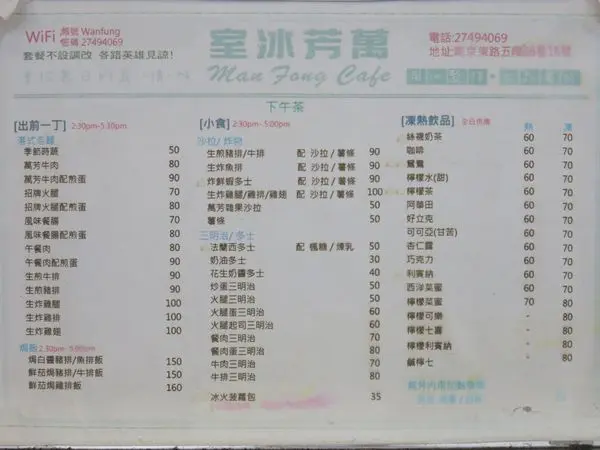 WiFi 帳號 Wanfung
密碼 27494069
套餐不設調改 各路英雄見諒!
室冰芳萬
Man Fong Cafe
電話:27494069
地址:南京東路五段
下午茶
[出前一丁] 2:30pm-5:30pm
港式公仔麵
季節時蔬 50
萬芳牛肉 80
萬芳牛肉配煎蛋 90
招牌火腿 70
招牌火腿配煎蛋 80
風味餐腸 70
風味餐腸配煎蛋 80
午餐肉 80
午餐肉配煎蛋 90
生煎牛排 90
生煎豬排 90
生炸雞腿 100
生炸雞排 100
生炸雞翅 100
焗飯 2:30pm-5:00pm
焗白醬豬排/魚排飯 150
鮮茄焗豬排/牛排飯 150
鮮茄焗雞排飯 160
[小食] 2:30pm-5:00pm
沙拉/ 炸物
生煎豬排/牛排 配 沙拉/薯條 90
生炸魚排 配 沙拉/薯條 90
炸鮮蝦多士 配 沙拉/薯條 90
生炸雞腿/雞排/雞翅 配 沙拉/薯條 100
萬芳雜果沙拉 50
薯條 50
三明治/ 多士
法蘭西多士 配 楓糖/煉乳 50
奶油多士 30
花生奶醬多士 40
炒蛋三明治 50
火腿三明治 50
火腿蛋三明治 60
火腿起司三明治 60
餐肉三明治 70
餐肉蛋三明治 80
牛肉三明治 70
牛排三明治 80
冰火菠蘿包 35
[凍熱飲品] 全日供應 熱 凍
絲襪奶茶 60 70
咖啡 60 70
鴛鴦 60 70
檸檬水(甜) 60 70
檸檬茶 60 70
阿華田 60 70
好立克 60 70
可可亞(甘苦) 60 70
杏仁露 60 70
巧克力 60 70
利賓納 60 70
西洋菜蜜 60 70
檸檬菜蜜 70 80
檸檬可樂 - 80
檸檬七喜 - 80
檸檬利賓納 - 80
鹹檸七 - 80